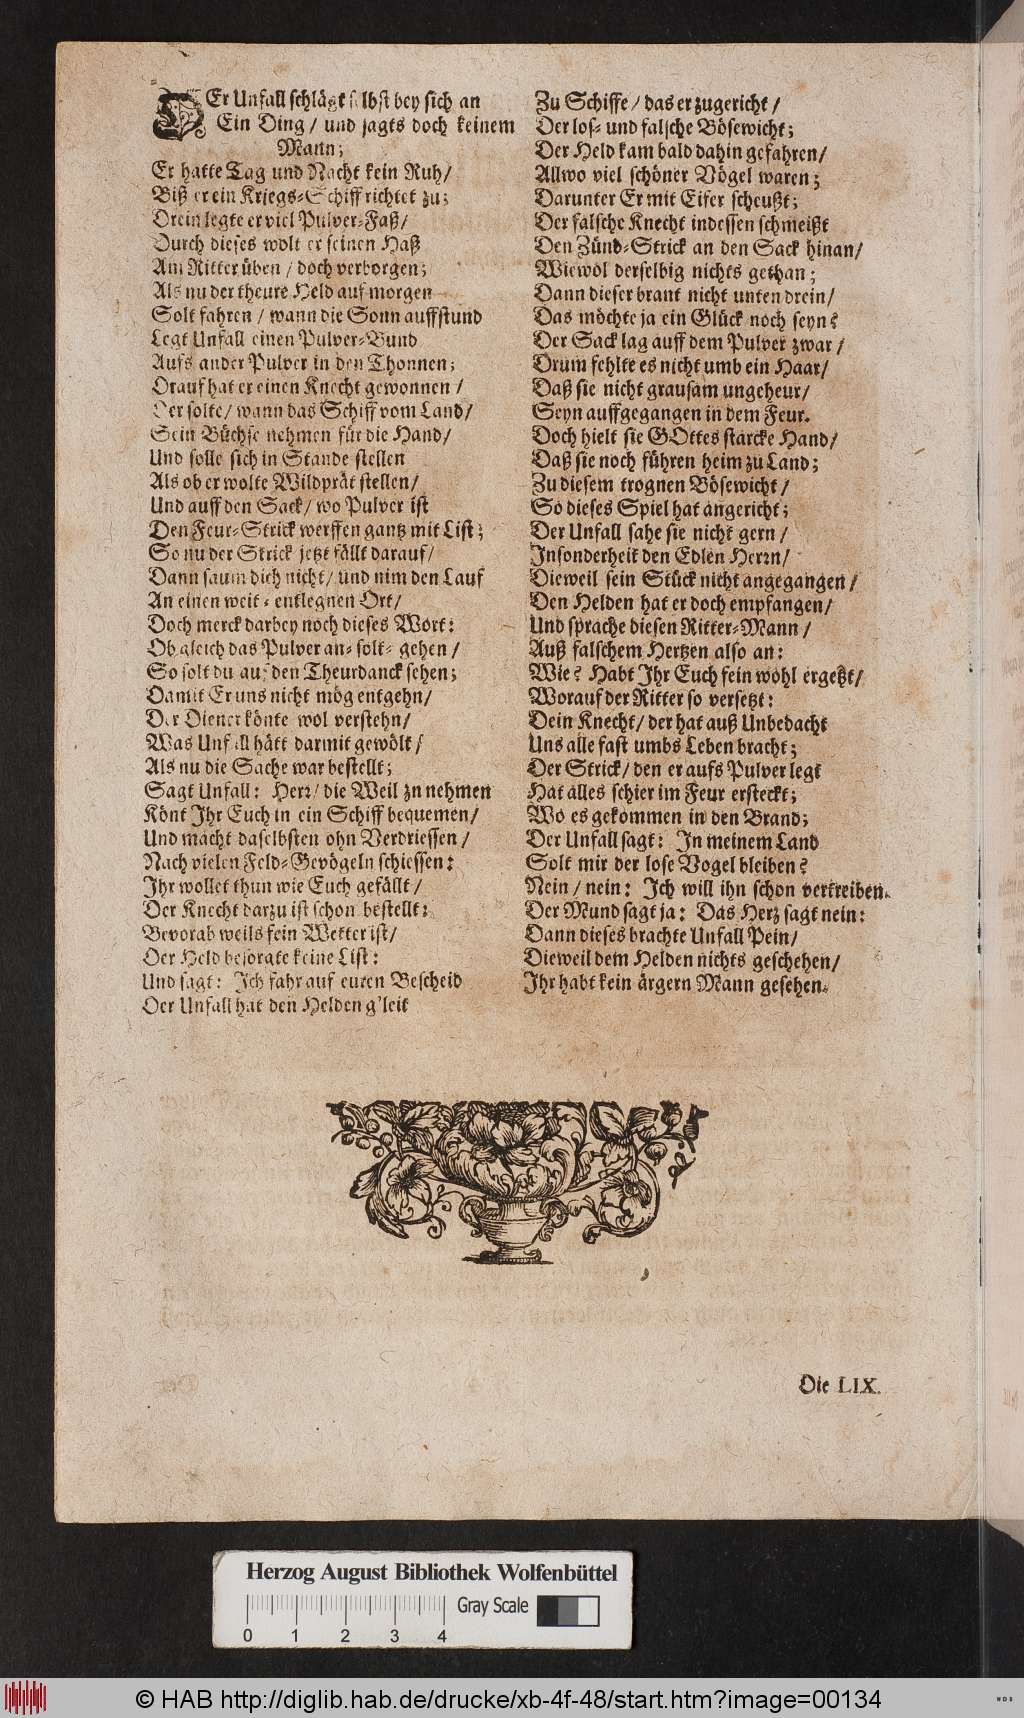 DEr Unfall schlägt selbst bey sich an
Ein Ding / und jagts doch keinem
Mann;
Er hatte Tag und Nacht kein Ruh/
Biß er ein Kriegs-Schiff richtet zu;
Drein legte er viel Pulver-Faß/
Durch dieses wolt er seinen Haß
Am Ritter üben / doch verborgen;
Als nu der theure Held auf morgen
Solt fahren / wann die Sonn auffstund
Legt Unfall einen Pulver-Bund
Aufs ander Pulver in den Thonnen;
Drauf hat er einen Knecht gewonnen /
Der solte/ wann das Schiff vom Land/
Sein Büchse nehmen für die Hand/
Und solle sich in Stande stellen
Als ob er wolte Wildprät stellen/
Und auff den Sack/ wo Pulver ist
Den Feur-Strick werffen gantz mit List;
So nu der Strick jetzt fällt darauf/
Dann saum dich nicht/ und nim den Lauf
An einen weit-entlegnen Ort/
Doch merck darbey noch dieses Wort:
Ob gleich das Pulver an-solt-gehen /
So solt du auf den Theurdanck sehen;
Damit Er uns nicht mög entgehn/
Der Diener könte wol verstehn/
Was Unfall hätt darmit gewölt/
Als nu die Sache war bestellt;
Sagt Unfall: Herr/ die Weil zu nehmen
Könt Ihr Euch in ein Schiff bequemen/
Und macht daselbsten ohn Verdriessen /
Nach vielen Feld-Gevögeln schiessen:
Ihr wollet thun wie Euch gefällt /
Der Knecht darzu ist schon bestellt:
Bevorab weils fein Wetter ist/
Der Held besorgte keine List:
Und sagt: Ich fahr auf euren Bescheid
Der Unfall hat den Helden g'leit
Zu Schiffe / das er zugericht /
Der los- und falsche Bösewicht;
Der Held kam bald dahin gefahren/
Allwo viel schöner Vögel waren;
Darunter Er mit Eifer scheußt;
Der falsche Knecht indessen schmeißt
Den Zünd-Strick an den Sack hinan/
Wiewol derselbig nichts gethan;
Dann dieser brant nicht unten drein/
Das möchte ja ein Glück noch seyn?
Der Sack lag auff dem Pulver zwar /
Drum fehlte es nicht umb ein Haar/
Daß sie nicht grausam ungeheur/
Seyn auffgegangen in dem Feur.
Doch hielt sie GOttes starcke Hand/
Daß sie noch führen heim zu Land;
Zu diesem trognen Bösewicht /
So dieses Spiel hat angericht;
Der Unfall sahe sie nicht gern /
Insonderheit den Edlen Herrn/
Dieweil sein Stück nicht angegangen /
Den Helden hat er doch empfangen/
Und sprache diesen Ritter-Mann /
Auß falschem Hertzen also an:
Wie? Habt Ihr Euch fein wohl ergetzt/
Worauf der Ritter so versetzt:
Dein Knecht/ der hat auß Unbedacht
Uns alle fast umbs Leben bracht;
Der Strick/ den er aufs Pulver legt
Hat alles schier im Feur ersteckt;
Wo es gekommen in den Brand;
Der Unfall sagt: In meinem Land
Solt mir der lose Vogel bleiben?
Nein / nein: Ich will ihn schon vertreiben.
Der Mund sagt ja: Das Herz sagt nein:
Dann dieses brachte Unfall Pein/
Dieweil dem Helden nichts geschehen/
Ihr habt kein ärgern Mann gesehen.
Die LIX.
Herzog August Bibliothek Wolfenbüttel
Gray Scale
0 1 2 3 4
© HAB http://diglib.hab.de/drucke/xb-4f-48/start.htm?image=00134